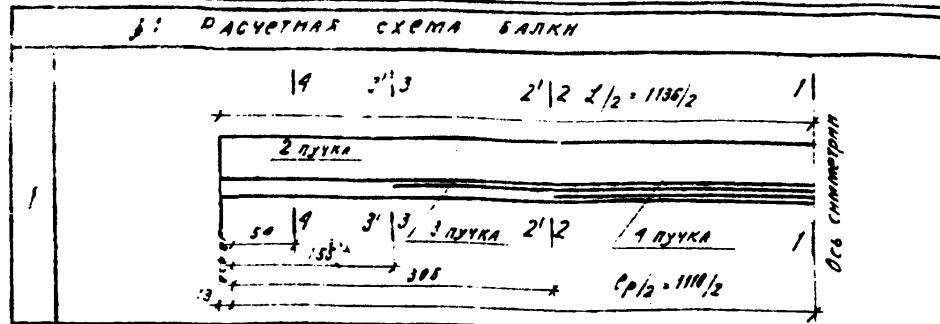 РАСЧЕТНАЯ СХЕМА БАЛКИ
4 3' 3 2' 2 L/2 = 1136/2 1
2 пучка
Ось симметрии
1
4 3' 3 3 пучка 2' 2 4 пучка 1
50
155
306
lp/2 = 1110/2
13